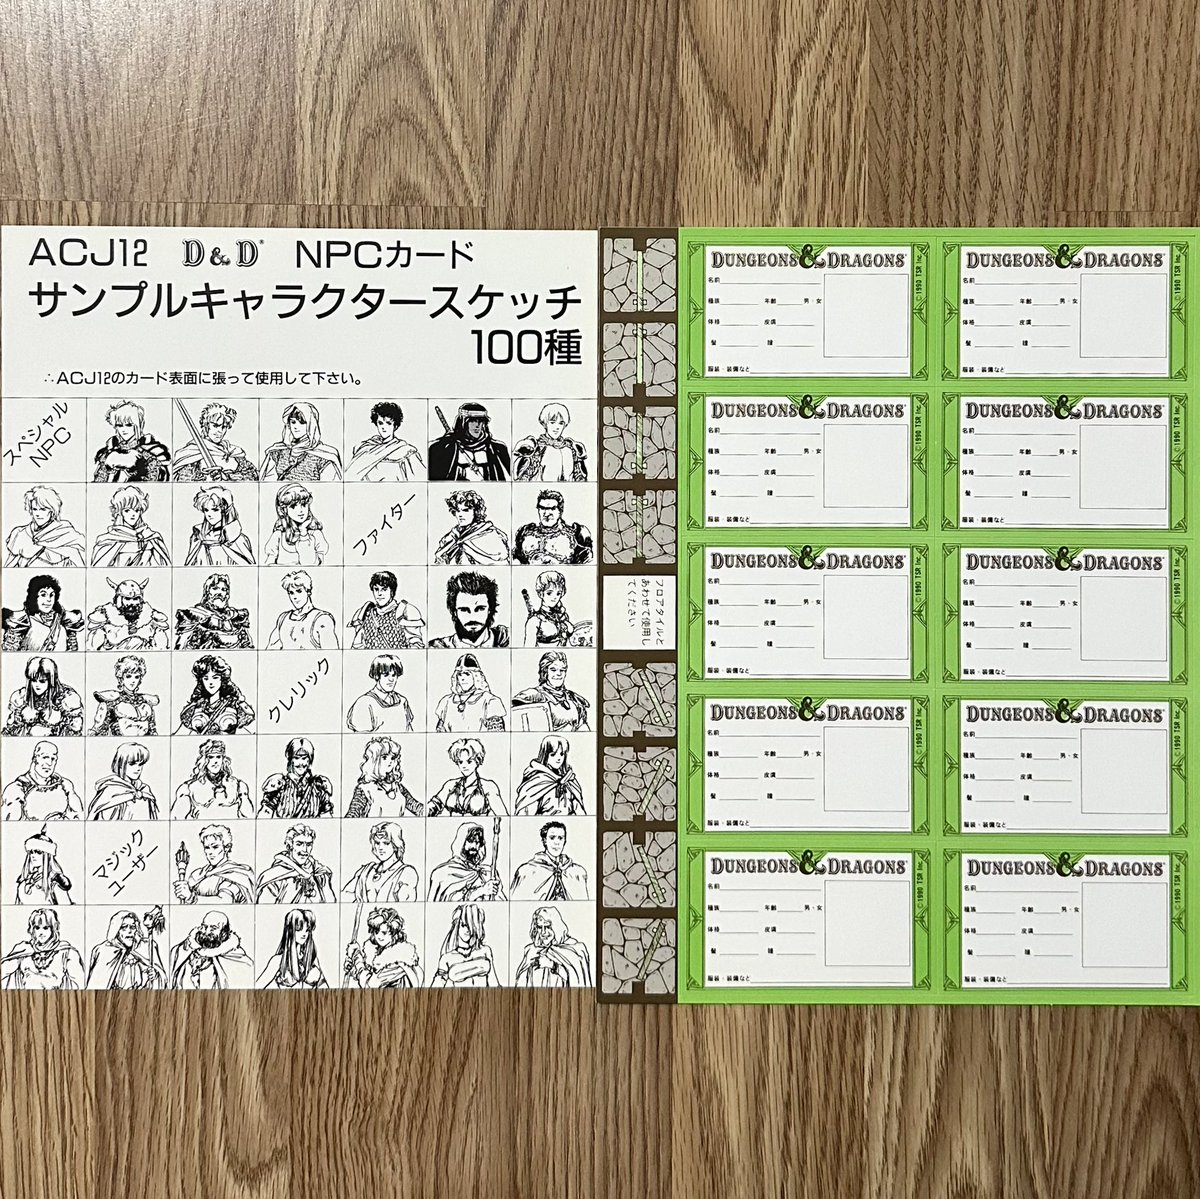 ACJ12 D&D® NPCカード
サンプルキャラクタースケッチ
100種
∴ACJ12のカード表面に張って使用して下さい。
スペシャル
NPC
ファイター
クレリック
マジック
ユーザー
フロアタイルと
あわせて使用し
てください
DUNGEONS & DRAGONS®
名前
種族 年齢 男・女
体格 皮膚
髪 瞳
服装・装備など
©1990 TSR Inc.
DUNGEONS & DRAGONS®
名前
種族 年齢 男・女
体格 皮膚
髪 瞳
服装・装備など
©1990 TSR Inc.
DUNGEONS & DRAGONS®
名前
種族 年齢 男・女
体格 皮膚
髪 瞳
服装・装備など
©1990 TSR Inc.
DUNGEONS & DRAGONS®
名前
種族 年齢 男・女
体格 皮膚
髪 瞳
服装・装備など
©1990 TSR Inc.
DUNGEONS & DRAGONS®
名前
種族 年齢 男・女
体格 皮膚
髪 瞳
服装・装備など
©1990 TSR Inc.
DUNGEONS & DRAGONS®
名前
種族 年齢 男・女
体格 皮膚
髪 瞳
服装・装備など
©1990 TSR Inc.
DUNGEONS & DRAGONS®
名前
種族 年齢 男・女
体格 皮膚
髪 瞳
服装・装備など
©1990 TSR Inc.
DUNGEONS & DRAGONS®
名前
種族 年齢 男・女
体格 皮膚
髪 瞳
服装・装備など
©1990 TSR Inc.
DUNGEONS & DRAGONS®
名前
種族 年齢 男・女
体格 皮膚
髪 瞳
服装・装備など
©1990 TSR Inc.
DUNGEONS & DRAGONS®
名前
種族 年齢 男・女
体格 皮膚
髪 瞳
服装・装備など
©1990 TSR Inc.